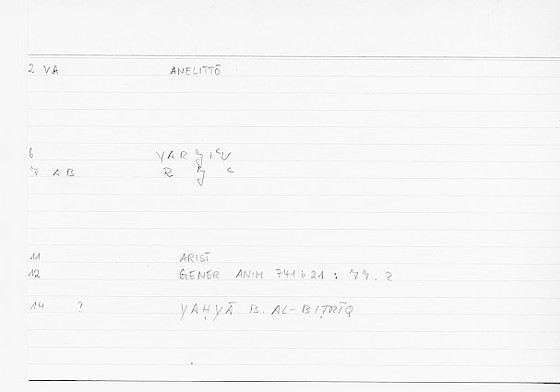 2 VA ANELITTŌ
6
7 AB
11 ARIST
12 GENER ANIM 741 b 21 : 77. 2
14 ? YAḤYĀ B. AL-BIṬRĪQ